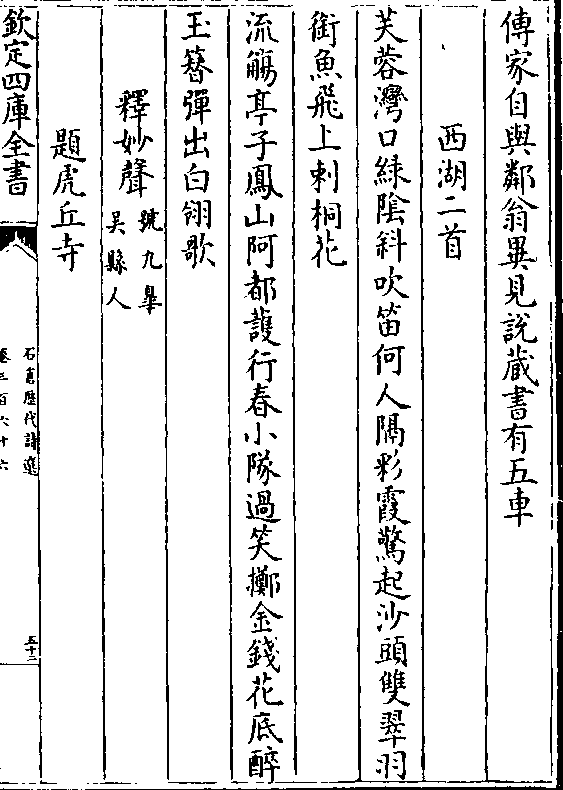 傳家自與鄰翁異見說藏書有五車
西湖二首
芙蓉灣口綠陰斜吹笛何人隔彩霞驚起沙頭雙翠羽
銜魚飛上刺桐花
流觴亭子鳳山阿都護行春小隊過笑擲金錢花底醉
玉簪彈出白翎歌
釋妙聲
號九臯
吳縣人
題虎丘寺
欽定四庫全書
石倉歷代詩選
卷三百六十六
五十二